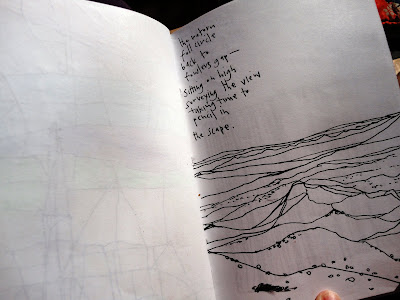 the return
full circle
back to
fowlers gap —
Sitting on high
surveying the view
taking time to
pencil in
the scape.